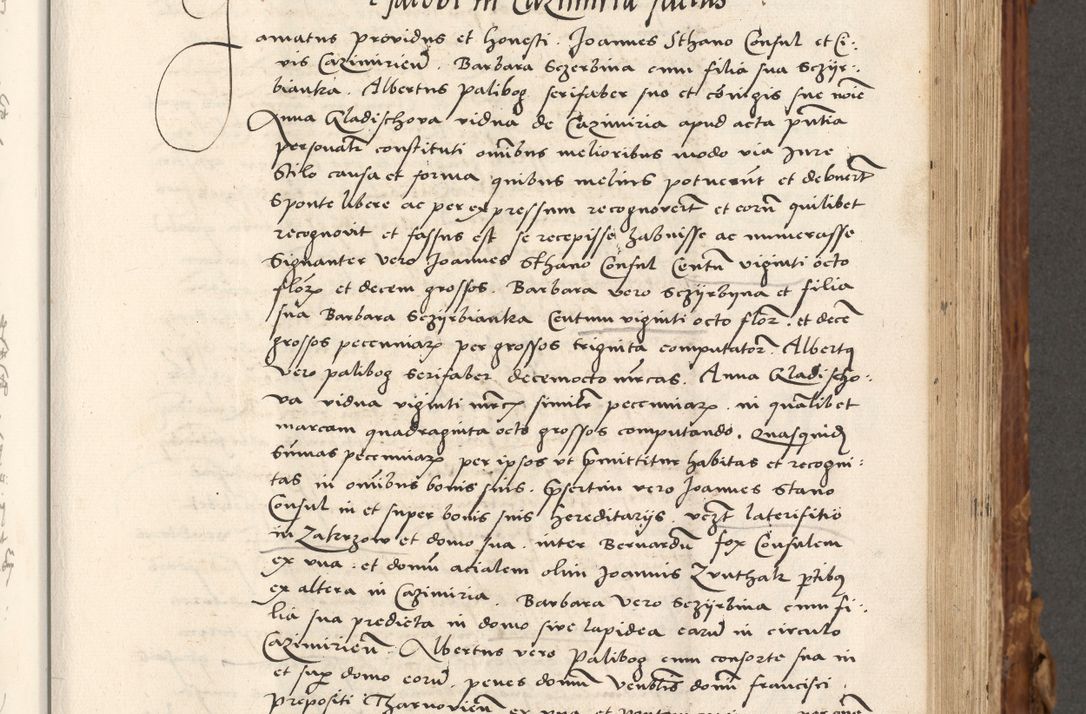 e Jacobi in Cazimiria factus
amatus providus et honesti . Joannes Sthano Consul et Ci-
vis Cazimirien . Barbara Sczerbina cum filia sua Sczyr-
bianka . Albertus palibog serifaber suo et coniugis sue noie
Anna Gladischova vidua de Cazimiria apud acta pntia
personatr constituti omnibus melioribus modo via Jure
Stilo causa et forma quibus melius potuerunt et debuert
sponte libere ac per expressum recognovert et eorum quilibet
recognovit et fassus est se recepisse habuisse ac numerasse
Signanter vero Joannes Sthano Consul Centum viginti octo
flor et decem grossos . Barbara vero Sczyrbyna et filia
sua Barbara Sczyrbianka Centum viginti octo flor . et dece
grossos pecuniar per grossos triginta computator . Albertus
vero palibog serifaber decemocto mrcas . Anna Gladischo-
va vidua viginti mrcs similr pecuniar in qualibet
marcam quadraginta octo grossos computando . Quasquid
summas pecuniar per ipsos ut pmittitur habitas et recogni-
tas in omnibus bonis suis . psertim vero Joannes Stano
Consul in et super bonis suis hereditarijs . vezt laterifitio
in Zakrzow et domo sua . inter Bernardum fox Consulem
ex una . et domum acialem olim Joannis Zunthak ptibus
ex altera in Cazimiria . Barbara vero Sczyrbina cum fi-
lia sua predicta in domo sive lapidea earum in circulo
Cazimirien . Albertus vero Palibog cum consorte sua in
et sup domo eorum . penes domum venblis domi francisci
prepositi Tharnovien ex una et